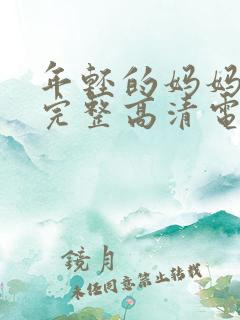 年轻的妈妈
完整高清电
鏡月
未经同意禁止转载